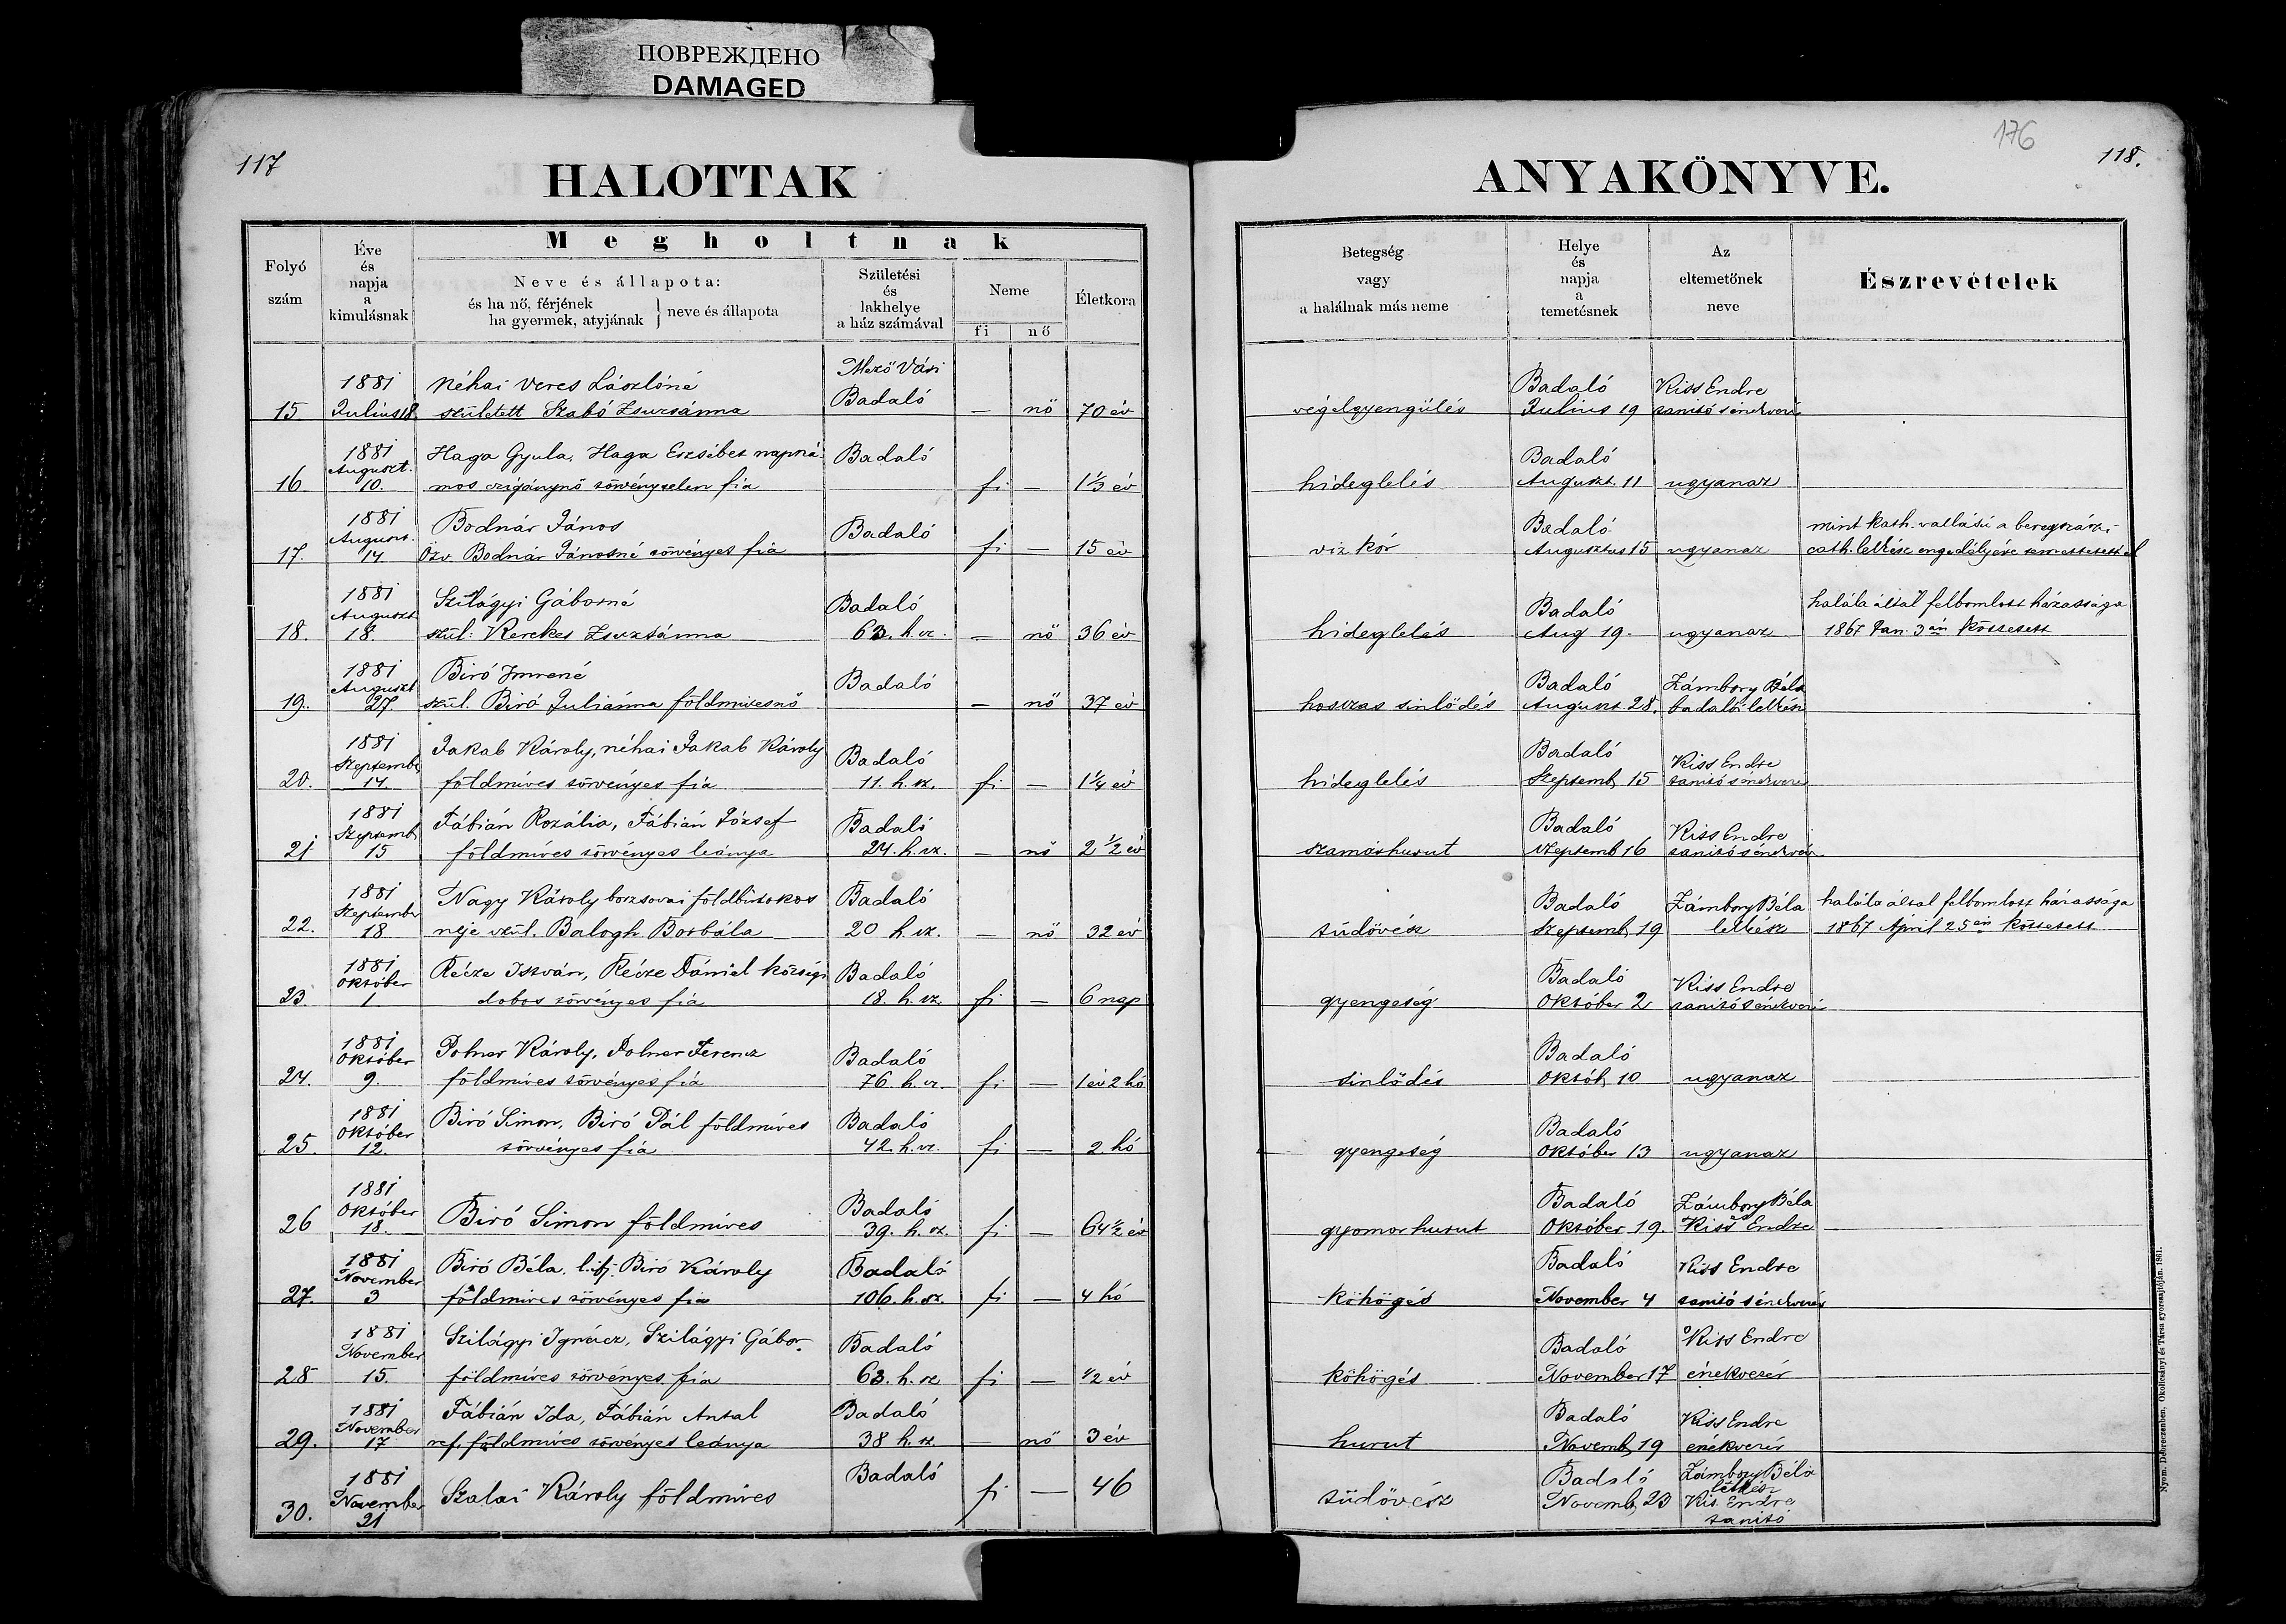 ПОВРЕЖДЕНО
DAMAGED
117
HALOTTAK
Folyó
szám
Éve
és
napja
a
kimulásnak
Megholtnak
Neve és állapota:
és ha nő, férjének
ha gyermek, atyjának } neve és állapota
Születési
és
lakhelye
a ház számával
Neme
fi nő
Életkora
1881 néhai Veres Lászlóné Mező Vári
15 Julius 18 született Szabó Zsuzsánna Badaló — nő 70 év
1881 Haga Gyula, Haga Erzsébet napszá- Badaló
August.
16. 10. mos czigánynő törvénytelen fia fi — 1 1/3 év
1881 Bodnár János Badaló
August.
17. 14 Özv. Bodnár Jánosné törvényes fia fi — 15 év
1881 Szilágyi Gáborné Badaló
August
18. 18. szül: Kerekes Zsuzsánna 63. h. sz. — nő 36 év
1881 Biró Imrené Badaló
August
19. 27. szül. Biró Juliánna földmivesnő — nő 37 év
1881 Jakab Károly, néhai Jakab Károly Badaló
Septemb
20. 14. földmíves törvényes fia 11. h. sz. fi — 1 1/4 év
1881 Fábián Rozália, Fábián József Badaló
Szeptemb
21 15 földmíves törvényes leánya 24. h. sz. — nő 2 1/2 év
1881 Nagy Károly borzsovai földbirtokos Badaló
Szeptember
22. 18 neje szül. Balogh Borbála 20 h. sz. — nő 32 év
1881 Récze István, Récze Dániel községi Badaló
Október
23. 1 dobos törvényes fia 18. h. sz. fi — 6 nap
1881 Polner Károly, Polner Ferencz Badaló
Október
24. 9. földmíves törvényes fia 76. h. sz. fi — 1 év 2 hó
1881 Biró Simon, Biró Pál földmíves Badaló
Október
25. 12. törvényes fia 42. h. sz. fi — 2 hó
1881
Október
26 18. Biró Simon földmíves Badaló 39. h. sz. fi — 64 1/2 év
1881 Biró Béla. l. ifj. Biró Károly Badaló
November
27. 3 földmíves törvényes fia 106. h. sz. fi — 4 hó
1881 Szilágyi Ignácz, Szilágyi Gábor Badaló
November
28 15. földmíves törvényes fia 63. h. sz. fi — 1/2 év
1881 Fábián Ida, Fábián Antal Badaló
November
29. 17 ref. földmíves törvényes leánya 38 h. sz. — nő 3 év
1881 Badaló
November Szalai Károly földmíves fi — 46
30. 21
176
118.
ANYAKÖNYVE.
Betegség
vagy
a halálnak más neme
Helye
és
napja
a
temetésnek
Az
eltemetőnek
neve
Észrevételek
Badaló Kiss Endre
végelgyengülés Julius 19 tanitó s énekvezér
Badaló
hideglelés August. 11 ugyanaz
Badaló mint kath. vallású a beregszászi
viz kór Augusztus 15 ugyanaz cath. lelkész engedélyére temettetett el
Badaló halála által felbomlott házassága
hideglelés Aug 19. ugyanaz 1867 Jan. 3 án köttetett
Badaló Zámbory Béla
hosszas sinlődés August 28. badalói lelkész
Badaló Kiss Endre
hideglelés Szeptemb. 15 tanitó s énekvezér
Badaló Kiss Endre
szamárhurut Szeptemb 16 tanitó s énekvezér
Badaló Zámbory Béla halála által felbomlott házassága
tüdővész Szeptemb 19 lelkész 1867 April 25 én köttetett
Badaló Kiss Endre
gyengeség Október 2 tanitó s énekvezér
Badaló
sinlődés Októb. 10 ugyanaz
Badaló
gyengeség Október 13 ugyanaz
Badaló Zámbory Béla
gyomorhurut Október 19. Kiss Endre
Badaló Kiss Endre
köhögés November 4 tanitó s énekvezér
Badaló Kiss Endre
köhögés November 17 énekvezér
Badaló Kiss Endre
hurut Novemb. 19 énekvezér
Badaló Zámbory Béla
lelkész
tüdővész Novemb. 23 Kis Endre
tanitó
Nyom. Debreczenben, Okolicsányi és Társa gyorssajtóján. 1861.